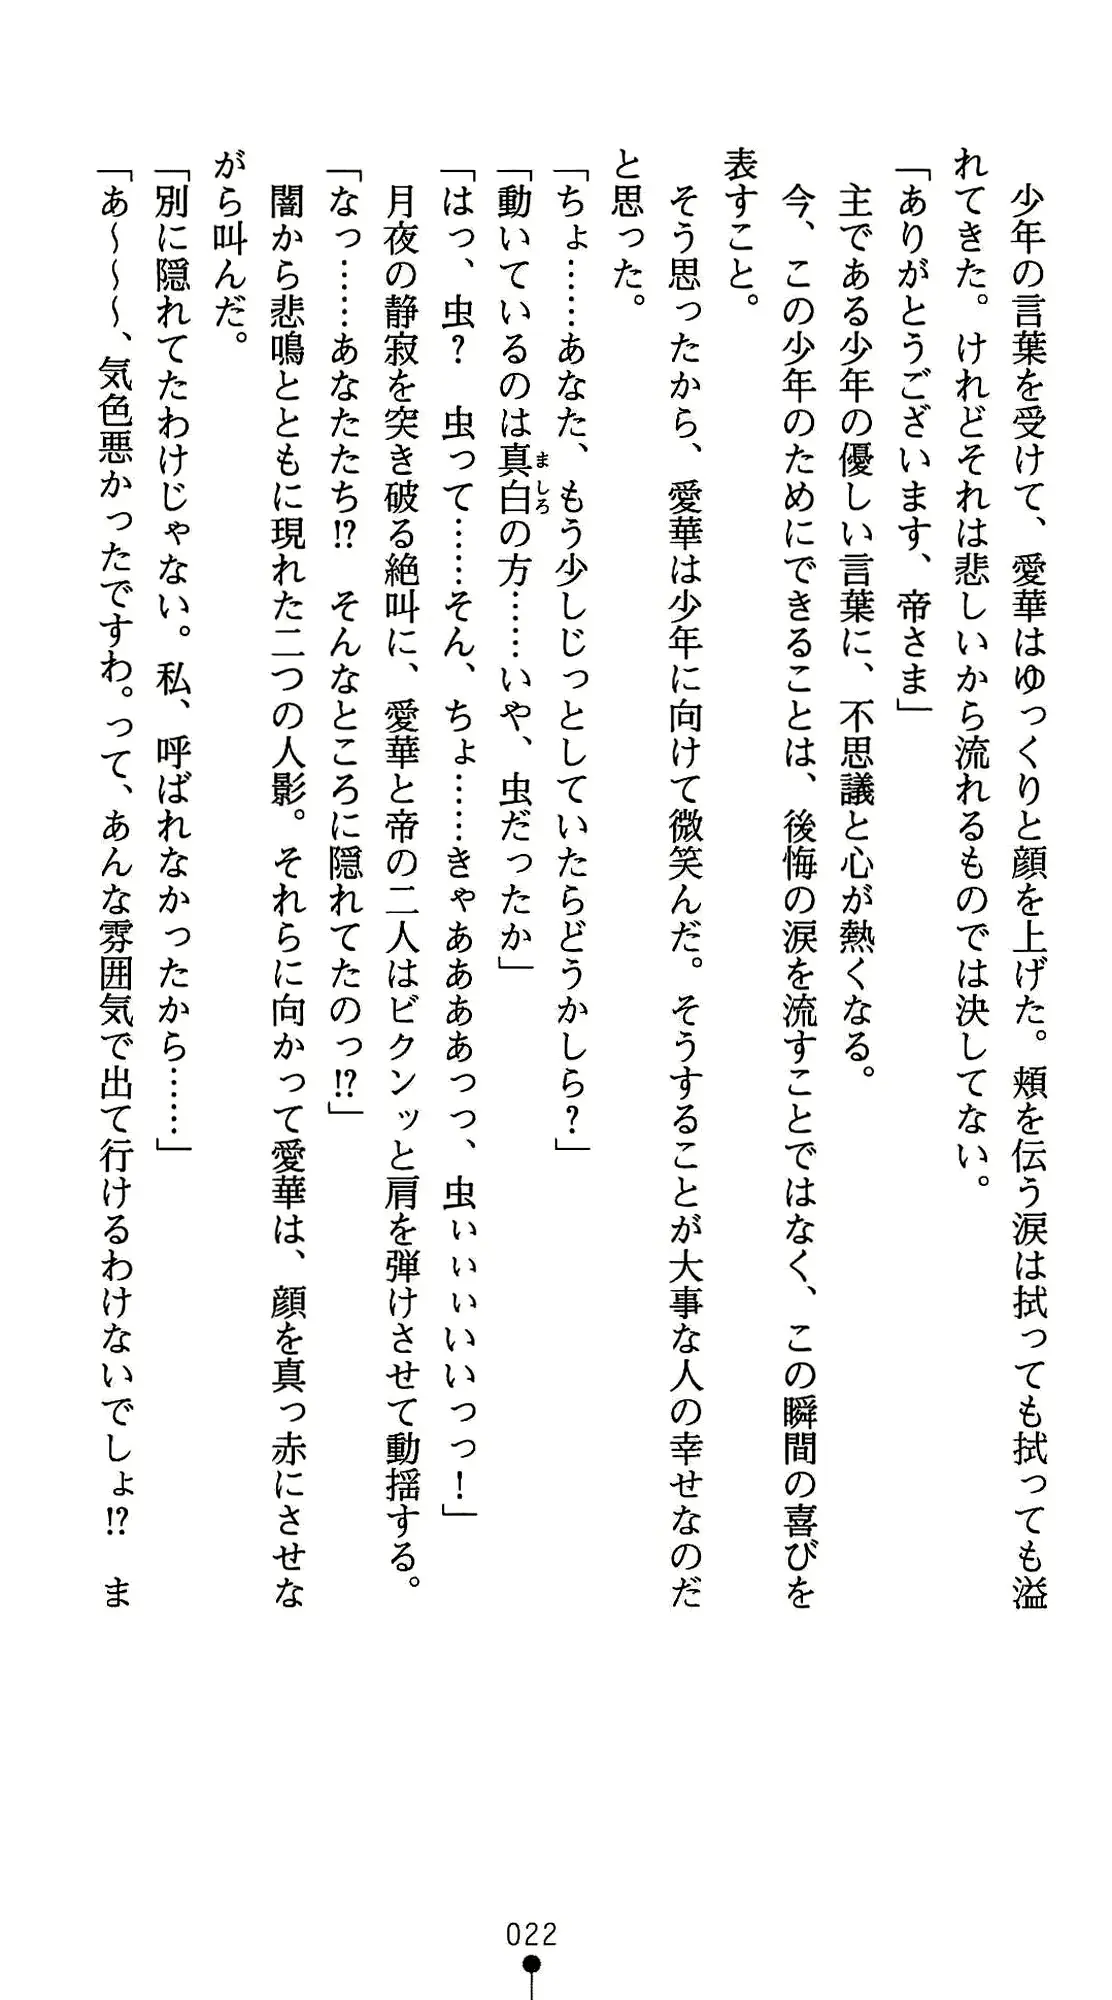 少年の言葉を受けて、愛華はゆっくりと顔を上げた。頬を伝う涙は拭っても拭っても溢
れてきた。けれどそれは悲しいから流れるものでは決してない。
「ありがとうございます、帝さま」
主である少年の優しい言葉に、不思議と心が熱くなる。
今、この少年のためにできることは、後悔の涙を流すことではなく、この瞬間の喜びを
表すこと。
そう思ったから、愛華は少年に向けて微笑んだ。そうすることが大事な人の幸せなのだ
と思った。
「ちょ……あなた、もう少しじっとしていたらどうかしら？」
「動いているのは真白の方……いや、虫だったか」
ましろ
「はっ、虫？　虫って……そん、ちょ……きゃああああっっ、虫ぃぃぃいいっっ！」
月夜の静寂を突き破る絶叫に、愛華と帝の二人はビクンッと肩を弾けさせて動揺する。
「なっ……あなたたち!?　そんなところに隠れてたのっ!?」
闇から悲鳴とともに現れた二つの人影。それらに向かって愛華は、顔を真っ赤にさせな
がら叫んだ。
「別に隠れてたわけじゃない。私、呼ばれなかったから……」
「あ～～～、気色悪かったですわ。って、あんな雰囲気で出て行けるわけないでしょ!?　ま
022